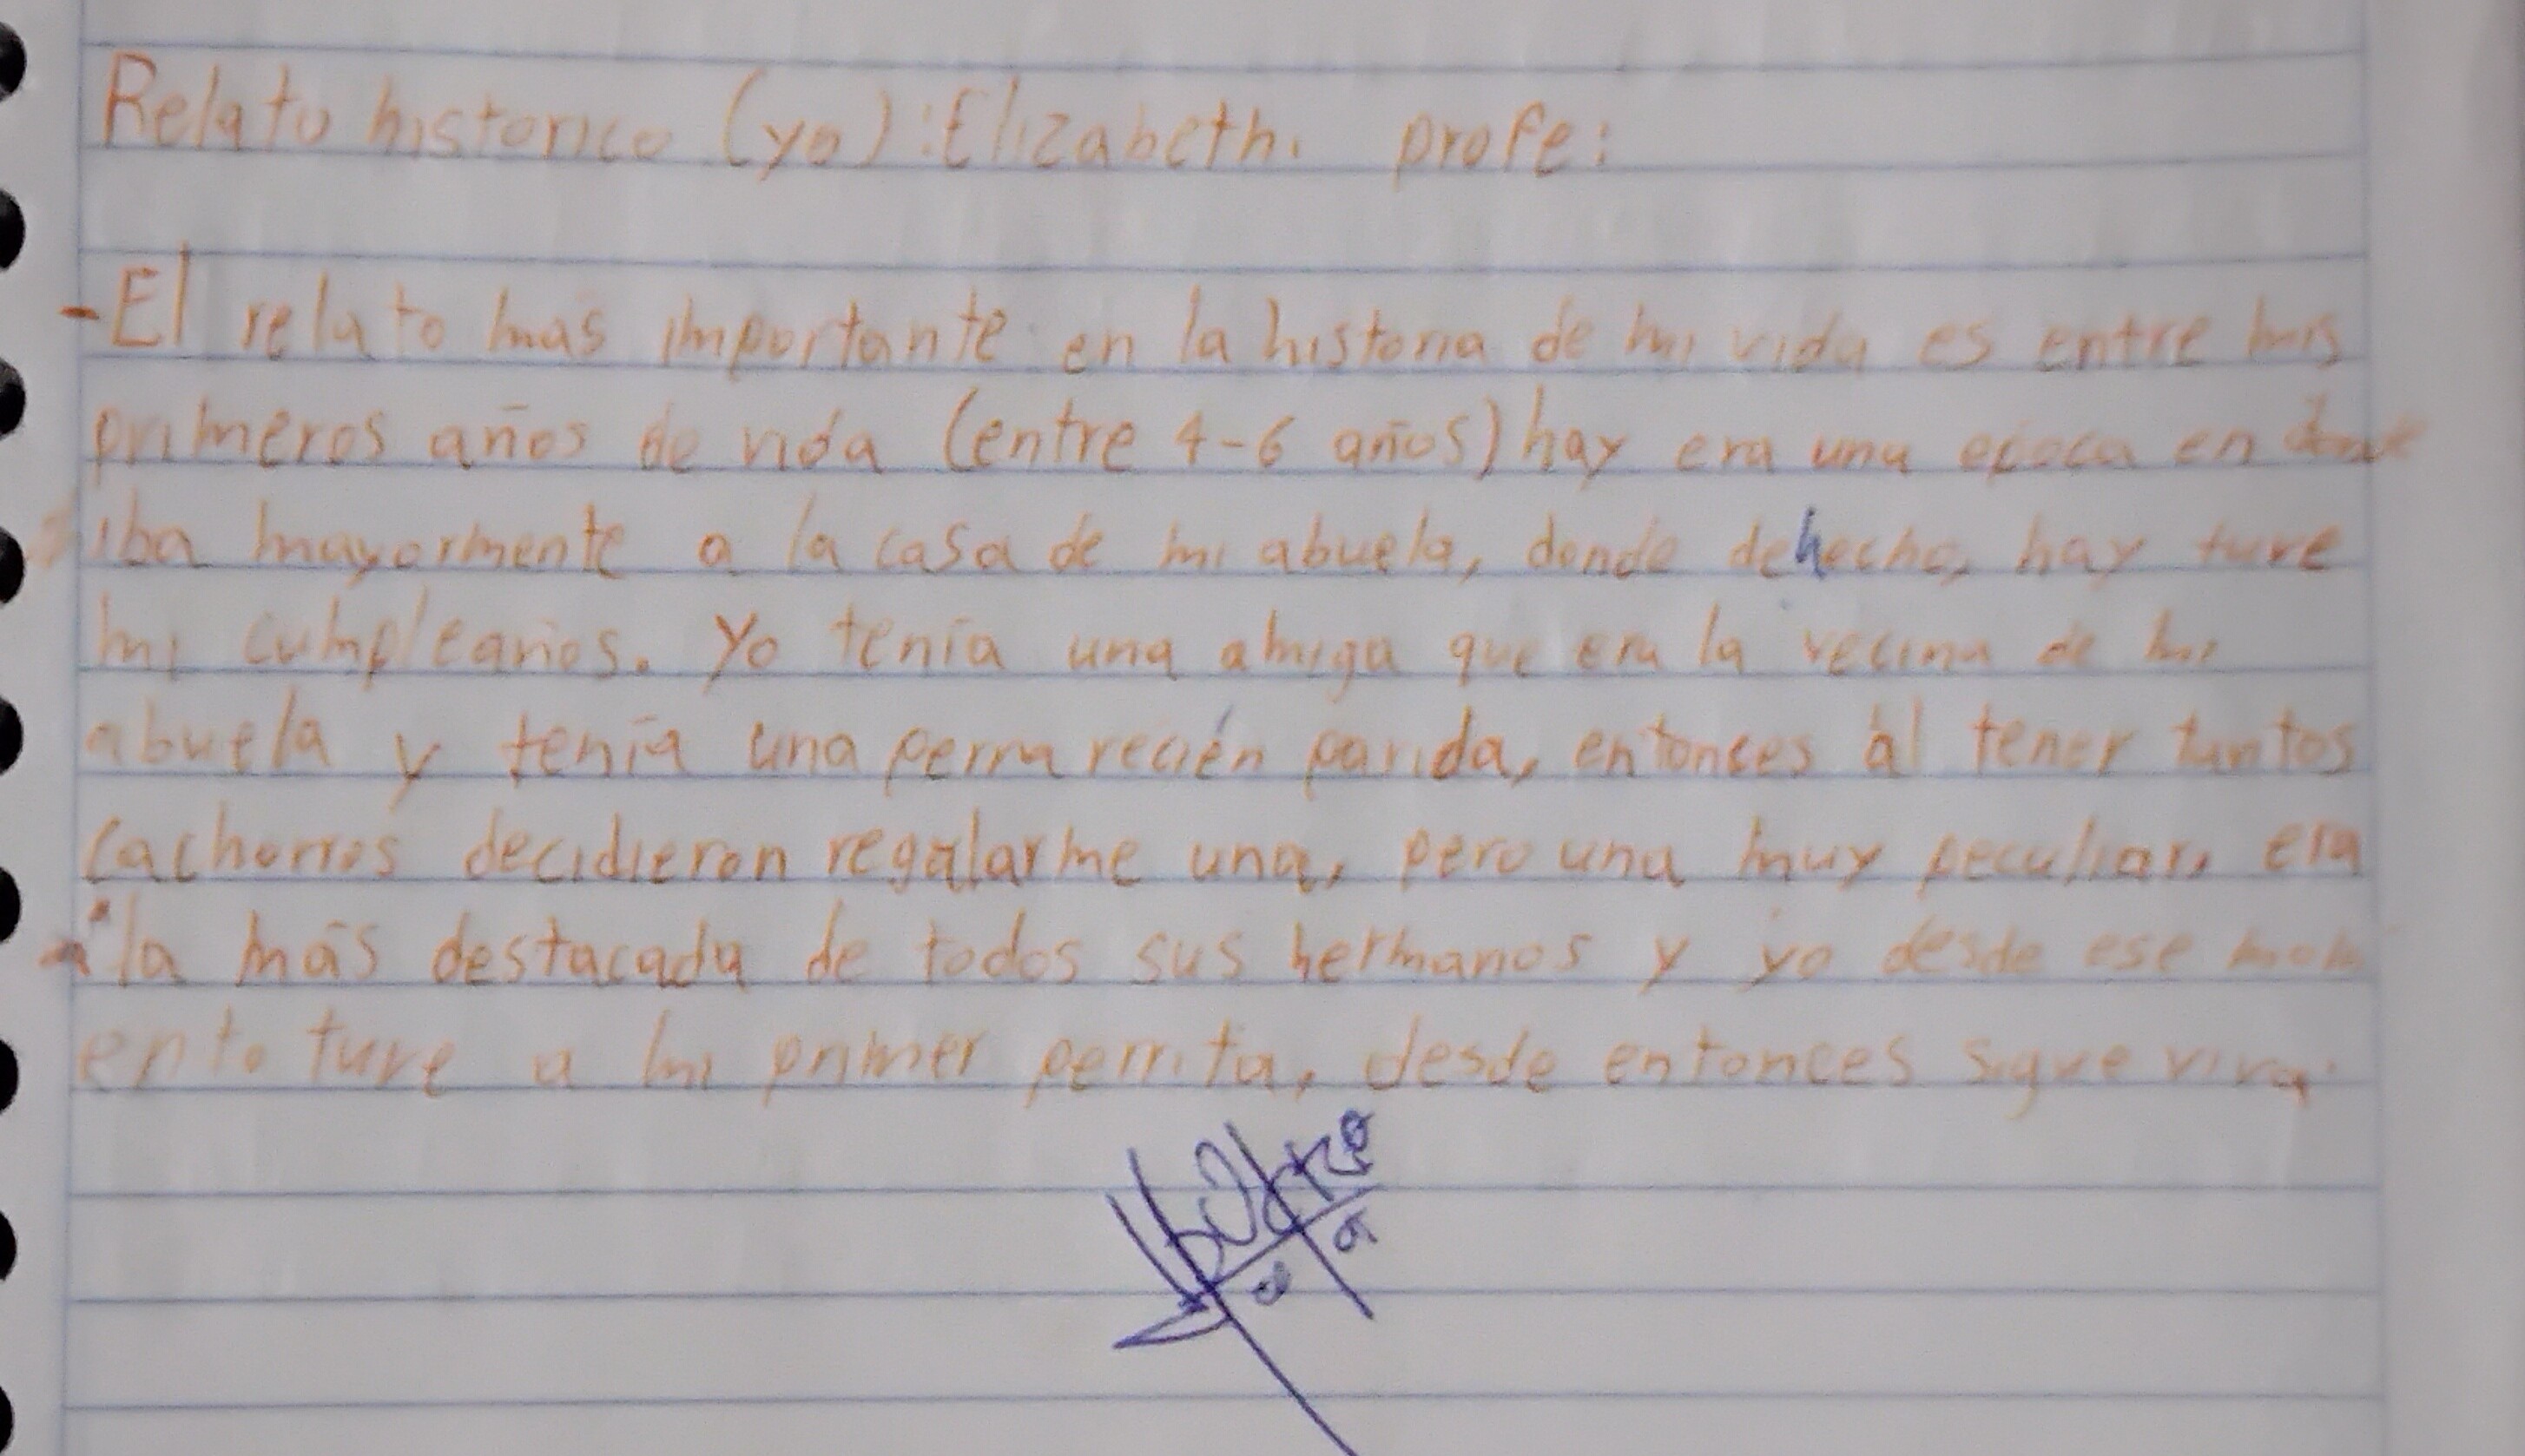 Relato historico (yo): Elizabeth. profe:
-El relato mas importante en la historia de mi vida es entre mis
primeros años de vida (entre 4-6 años) hay era una epoca en donde
iba mayormente a la casa de mi abuela, donde dehecho, hay tuve
mi cumpleaños. Yo tenía una amiga que era la vecina de mi
abuela y tenía una perra recién parida, entonces al tener tantos
cachorros decidieron regalarme una, pero una muy peculiar, era
la más destacada de todos sus hermanos y yo desde ese mom
ento tuve a mi primer perrita, desde entonces sigue viva.